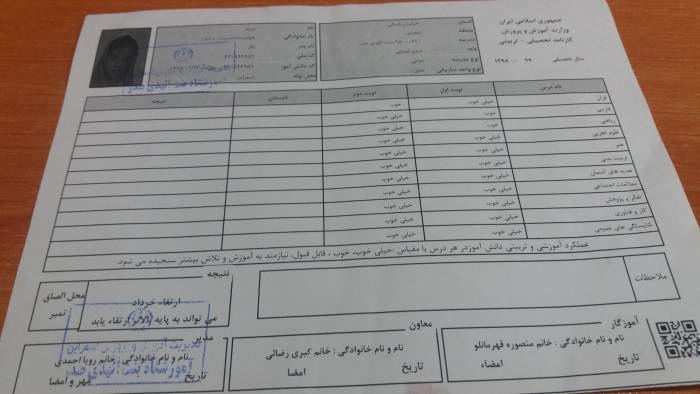 جمهوری اسلامی ایران
وزارت آموزش و پرورش
کارنامه تحصیلی - تربیتی
سال تحصیلی ۹۹ - ۱۳۹۸
استان خراسان شمالی
منطقه اسفراین
مدرسه
پایه
نوع مدرسه
نوع واحد سازمانی
نام
نام خانوادگی
نام پدر
کد ملی
کد دانش آموز
محل تولد اسفراین
نام درس نوبت اول نوبت دوم تابستان نتیجه
قرآن خیلی خوب خوب
فارسی خیلی خوب خیلی خوب
ریاضی خوب خیلی خوب
علوم تجربی خیلی خوب خیلی خوب
هنر خیلی خوب خیلی خوب
تربیت بدنی خیلی خوب خیلی خوب
هدیه های آسمان خیلی خوب خیلی خوب
مطالعات اجتماعی خیلی خوب خیلی خوب
تفکر و پژوهش خیلی خوب خیلی خوب
کار و فناوری خیلی خوب خیلی خوب
شایستگی های عمومی خیلی خوب خیلی خوب
عملکرد آموزشی و تربیتی دانش آموز در هر درس با مقیاس :خیلی خوب، خوب ، قابل قبول، نیازمند به آموزش و تلاش بیشتر سنجیده می شود.
ملاحظات
نتیجه
ارتقاء خرداد
می تواند به پایه بالاتر ارتقاء یابد
محل الصاق
تمبر
آموزگار
نام و نام خانوادگی : خانم منصوره قهرمانلو
تاریخ امضاء
معاون
نام و نام خانوادگی : خانم کبری رضائی
تاریخ امضا
مدیر
نام و نام خانوادگی: خانم رویا احمدی
تاریخ مهر و امضا